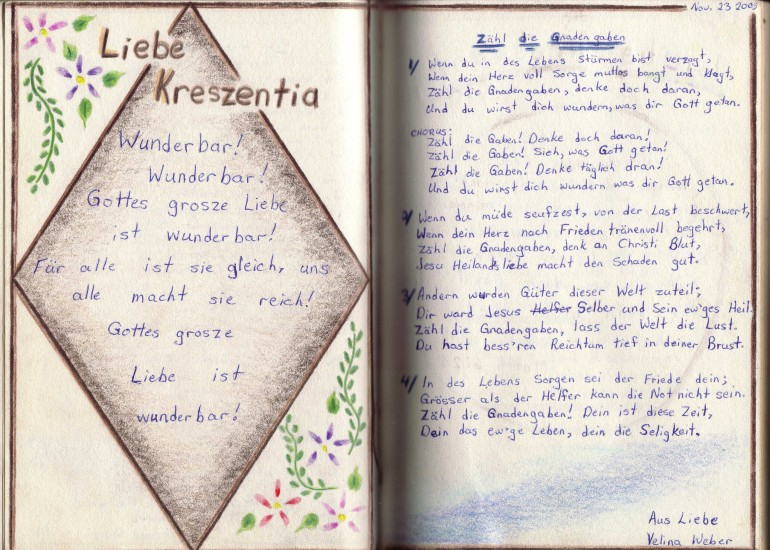 Liebe
Kreszentia
Wunderbar!
Wunderbar!
Gottes grosze Liebe
ist wunderbar!
Für alle ist sie gleich, uns
alle macht sie reich!
Gottes grosze
Liebe ist
wunderbar!
Nov. 23 2005
Zähl die Gnadengaben
1/ Wenn du in des Lebens Stürmen bist verzagt,
Wenn dein Herz voll Sorge mutlos bangt und klagt,
Zähl die Gnadengaben, denke doch daran,
Und du wirst dich wundern, was dir Gott getan.
CHORUS:
Zähl die Gaben! Denke doch daran!
Zähl die Gaben! Sieh, was Gott getan!
Zähl die Gaben! Denke täglich dran!
Und du wirst dich wundern was dir Gott getan.
2/ Wenn du müde seufzest, von der Last beschwert,
Wenn dein Herz nach Frieden tränenvoll begehrt,
Zähl die Gnadengaben, denk an Christi Blut,
Jesu Heilandsliebe macht den Schaden gut.
3/ Andern wurden Güter dieser Welt zuteil;
Dir ward Jesus Helfer Selber und Sein ew'ges Heil.
Zähl die Gnadengaben, lass der Welt die Lust.
Du hast bess'ren Reichtum tief in deiner Brust.
4/ In des Lebens Sorgen sei der Friede dein;
Grösser als der Helfer kann die Not nicht sein.
Zähl die Gnadengaben! Dein ist diese Zeit,
Dein das ew'ge Leben, dein die Seligkeit.
Aus Liebe
Velina Weber